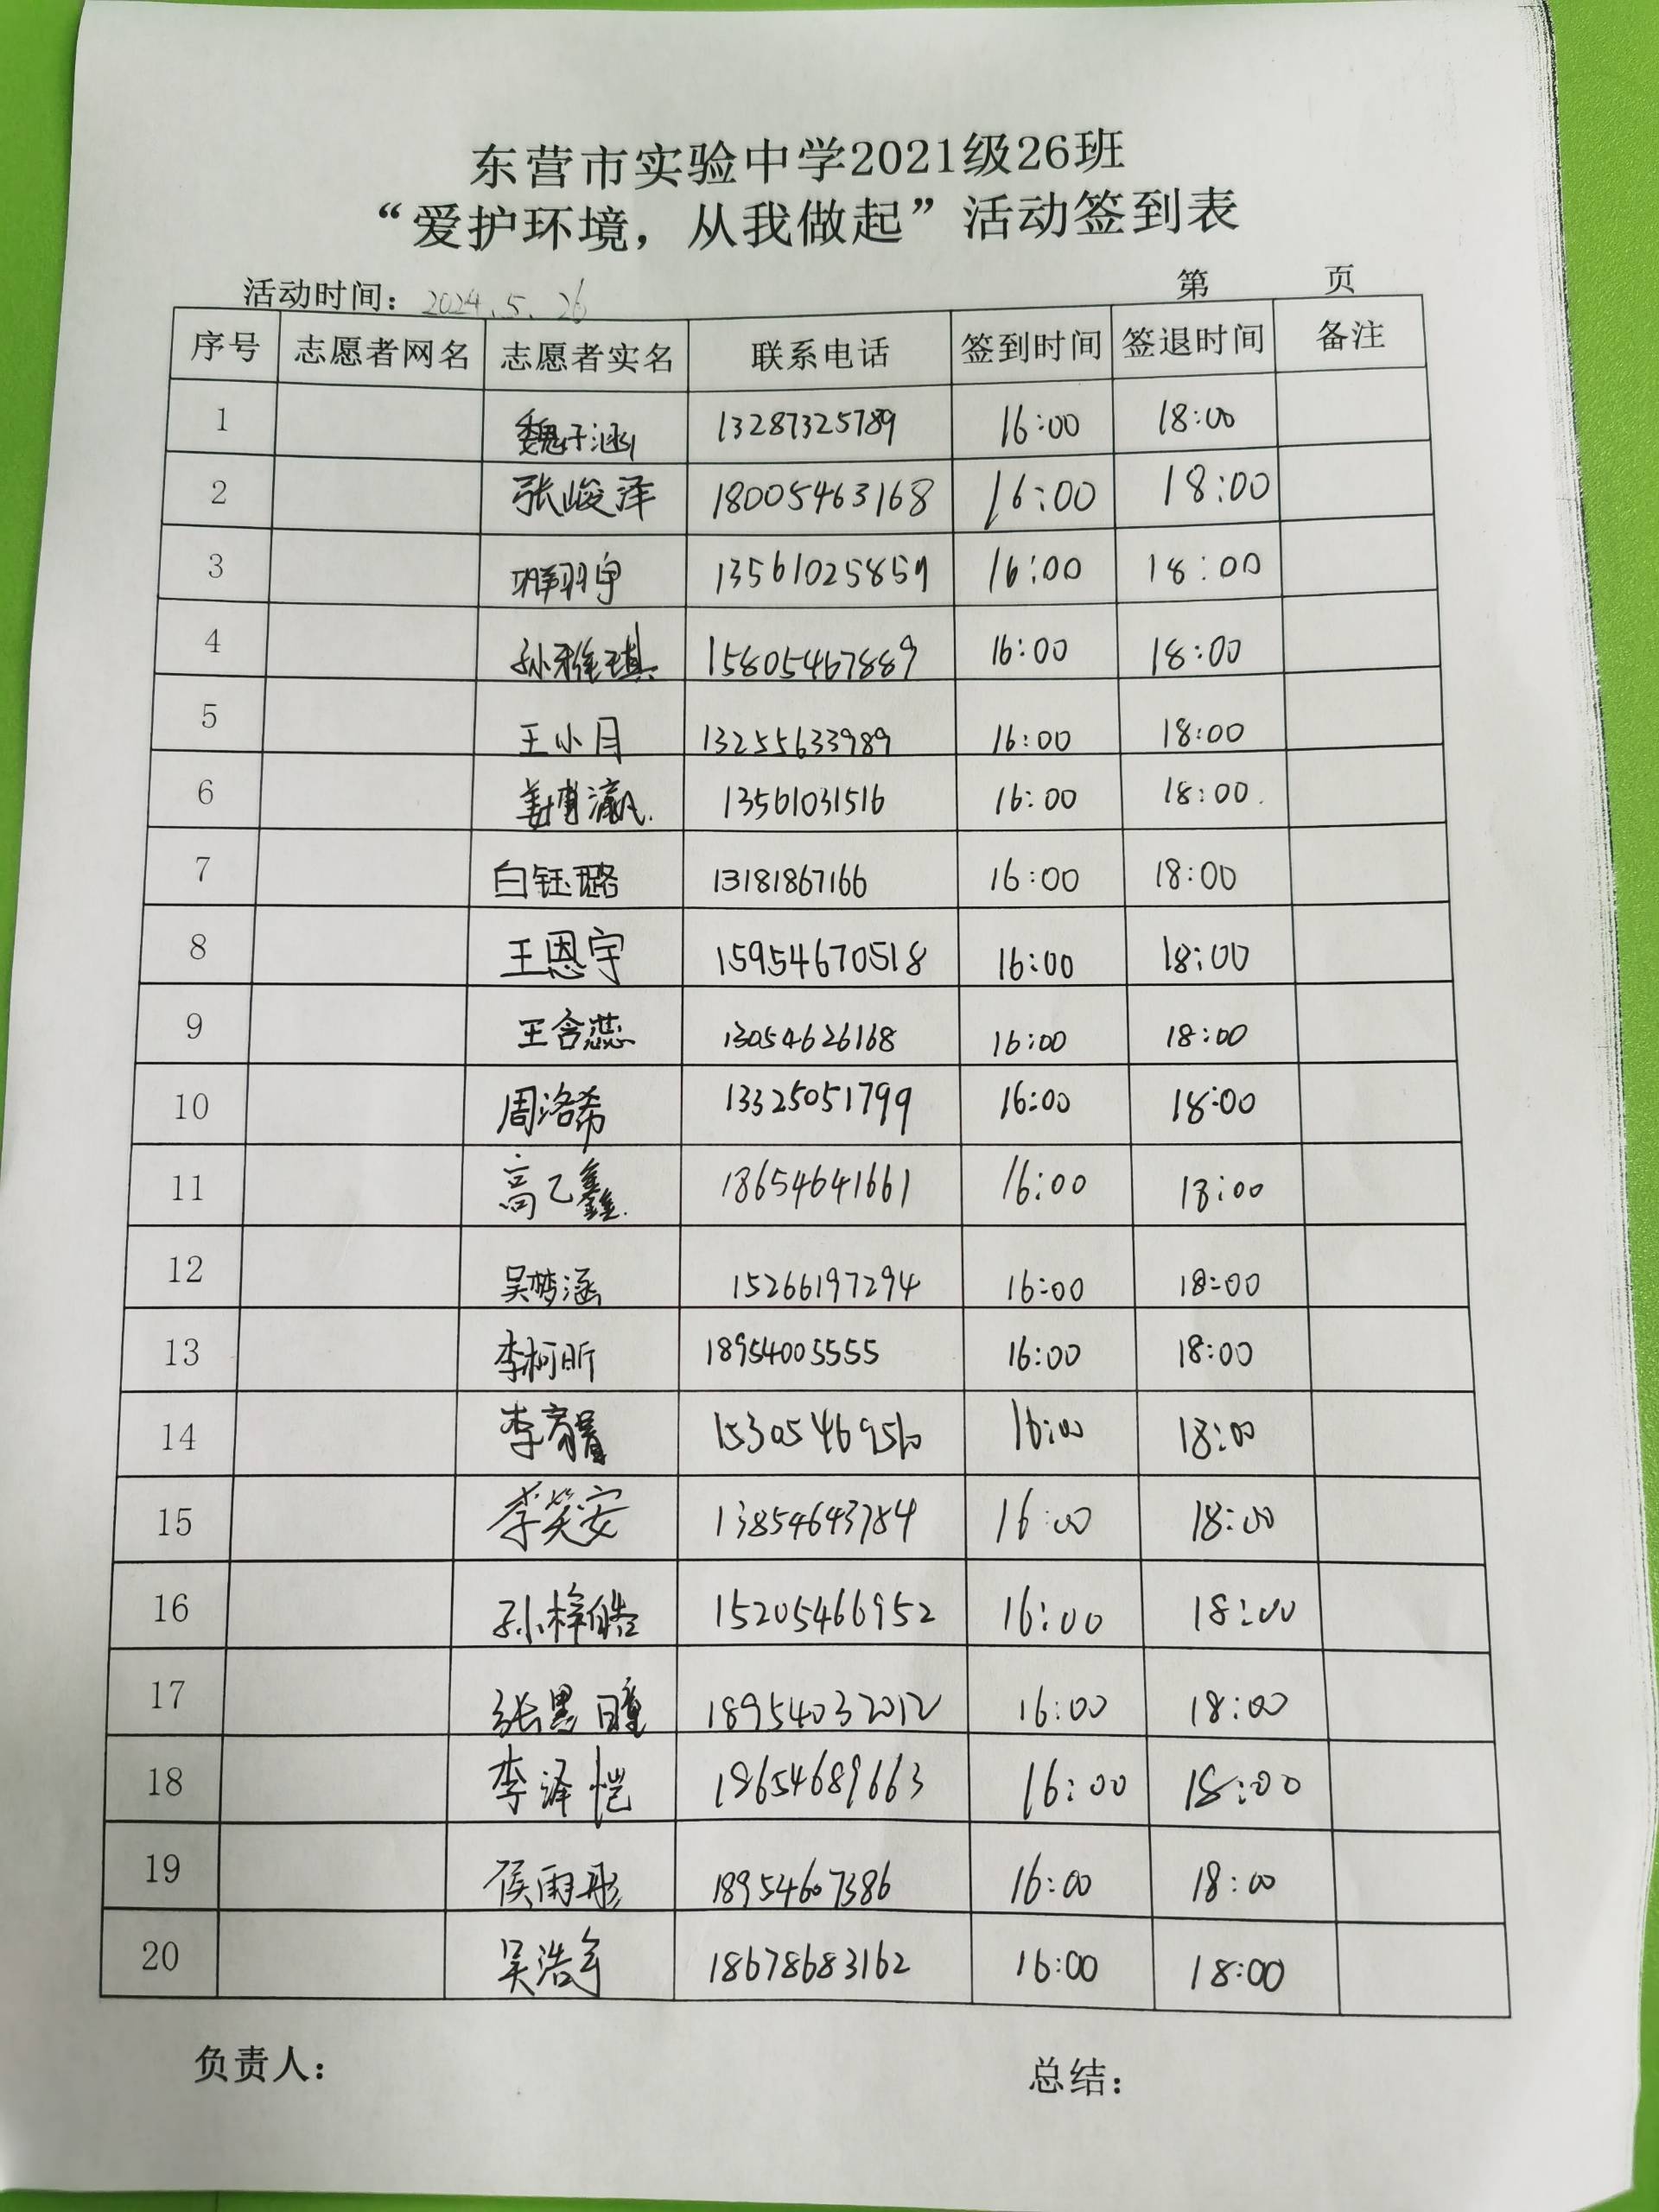 东营市实验中学2021级26班
“爱护环境，从我做起”活动签到表
活动时间：2024.5.26 第 页
序号 志愿者网名 志愿者实名 联系电话 签到时间 签退时间 备注
1 魏子涵 13287325789 16:00 18:00
2 张峻泽 18005463168 16:00 18:00
3 翔宇 13561025859 16:00 18:00
4 孙雅琪 15805467889 16:00 18:00
5 王小月 13255633989 16:00 18:00
6 姜博瀛 13561031516 16:00 18:00
7 白钰璐 13181867166 16:00 18:00
8 王恩宇 15954670518 16:00 18:00
9 王含蕊 13054626168 16:00 18:00
10 周洛希 13325051799 16:00 18:00
11 高乙鑫 18654641661 16:00 18:00
12 吴梦涵 15266197294 16:00 18:00
13 李柯昕 18954005555 16:00 18:00
14 李 16:00 18:00
15 李笑安 13854643784 16:00 18:00
16 孙梓皓 15205466952 16:00 18:00
17 张 18954032012 16:00 18:00
18 李泽恺 18654689663 16:00 18:00
19 侯雨彤 18954607386 16:00 18:00
20 吴浩宇 18678683162 16:00 18:00
负责人： 总结：